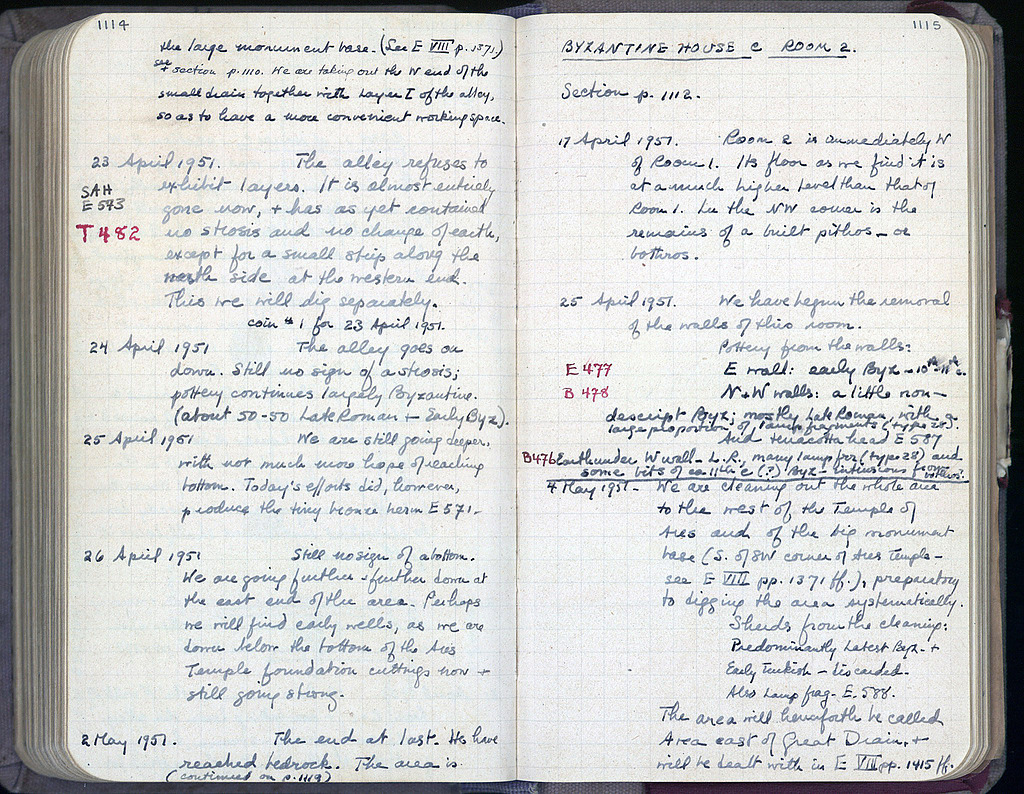 1114
the large monument base. (See E VIII p. 1371.)
see
+ section p. 1110. We are taking out the W end of the
small drain together with Layer I of the alley,
so as to have a more convenient working space.
23 April 1951. The alley refuses to
exhibit layers. It is almost entirely
SAH
E 573
gone now, + has as yet contained
T 482
no strosis and no change of earth,
except for a small strip along the
north side at the western end.
This we will dig separately.
coin #1 for 23 April 1951.
24 April 1951 The alley goes on
down. Still no sign of a strosis;
pottery continues largely Byzantine.
(about 50-50 Late Roman + Early Byz).
25 April 1951 We are still going deeper,
with not much more hope of reaching
bottom. Today's efforts did, however,
produce the tiny bronze herm E 571.
26 April 1951 Still no sign of a bottom.
We are going further + further down at
the east end of the area. Perhaps
we will find early wells, as we are
down below the bottom of the Ares
Temple foundation cuttings now +
still going strong.
2 May 1951. The end at last. We have
reached bedrock. The area is
(continued on p. 1119)
1115
BYZANTINE HOUSE C ROOM 2.
Section p. 1112.
17 April 1951. Room 2 is immediately W
of Room 1. Its floor as we find it is
at a much higher level than that of
Room 1. In the NW corner is the
remains of a built pithos - or
bothros.
25 April 1951. We have begun the removal
of the walls of this room.
Pottery from the walls:
E 477 E wall: early Byz - 10th-11th c.
B 478 N + W walls: a little non-
descript Byz; mostly Late Roman, with a
large proportion of lamp fragments (type 28).
And terracotta head E 587
B 476 Earth under W wall - L.R., many lamp frr (type 28) and
some bits of ca 11th c (?) Byz - intrusions from bothros?
4 May 1951 - We are cleaning out the whole area
to the west of the Temple of
Ares and of the big monument
base (S. of SW corner of Ares Temple -
see E VIII pp. 1371 ff.), preparatory
to digging the area systematically.
Sherds from the cleaning:
Predominantly Latest Byz. +
Early Turkish - discarded.
Also lamp frag. E. 588.
The area will henceforth be called
Area east of Great Drain, +
will be dealt with in E VIII pp. 1415 ff.